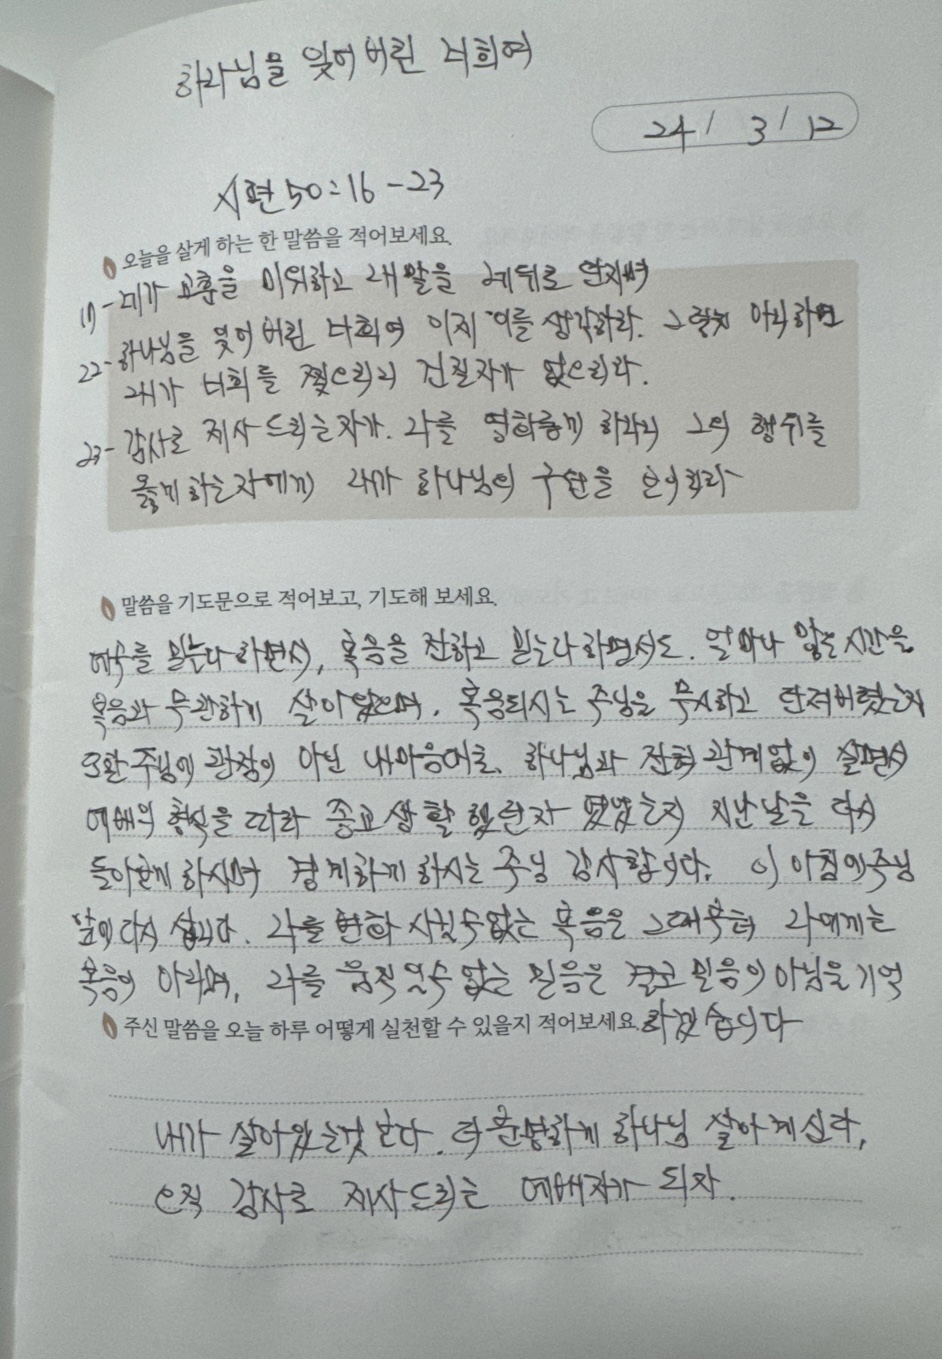 하나님을 잊어버린 너희여
24 / 3 / 12
시편 50:16-23
오늘을 살게 하는 한 말씀을 적어보세요.
17- 네가 교훈을 미워하고 내 말을 네 뒤로 던지며
22- 하나님을 잊어버린 너희여 이제 이를 생각하라. 그렇지 아니하면
내가 너희를 찢으리니 건질자가 없으리라.
23- 감사로 제사드리는자가. 나를 영화롭게 하나니 그의 행위를
옳게 하는자에게 내가 하나님의 구원을 보이리라
말씀을 기도문으로 적어보고, 기도해 보세요.
예수를 믿는다 하면서, 복음을 전하고 믿는다 하면서도. 얼마나 많은 시간을
복음과 무관하게 살아왔으며. 복음되시는 주님을 무시하고 던져버렸는지
또한 주님의 관점이 아닌 내마음대로. 하나님과 전혀 관계없이 살면서
예배의 형식을 따라 종교생활 했던자 였었는지 지난날을 다시
돌아보게 하시며 경계하게 하시는 주님 감사합니다. 이 아침에 주님
앞에 다시 섭니다. 나를 변화 시킬수없는 복음은 그때부터 나에게는
복음이 아니며, 나를 움직일수 없는 믿음은 결코 믿음이 아님을 기억
하겠습니다
주신 말씀을 오늘 하루 어떻게 실천할 수 있을지 적어보세요.
내가 살아있는것 보다. 더 분명하게 하나님 살아계신다.
오직 감사로 제사드리는 예배자가 되자.